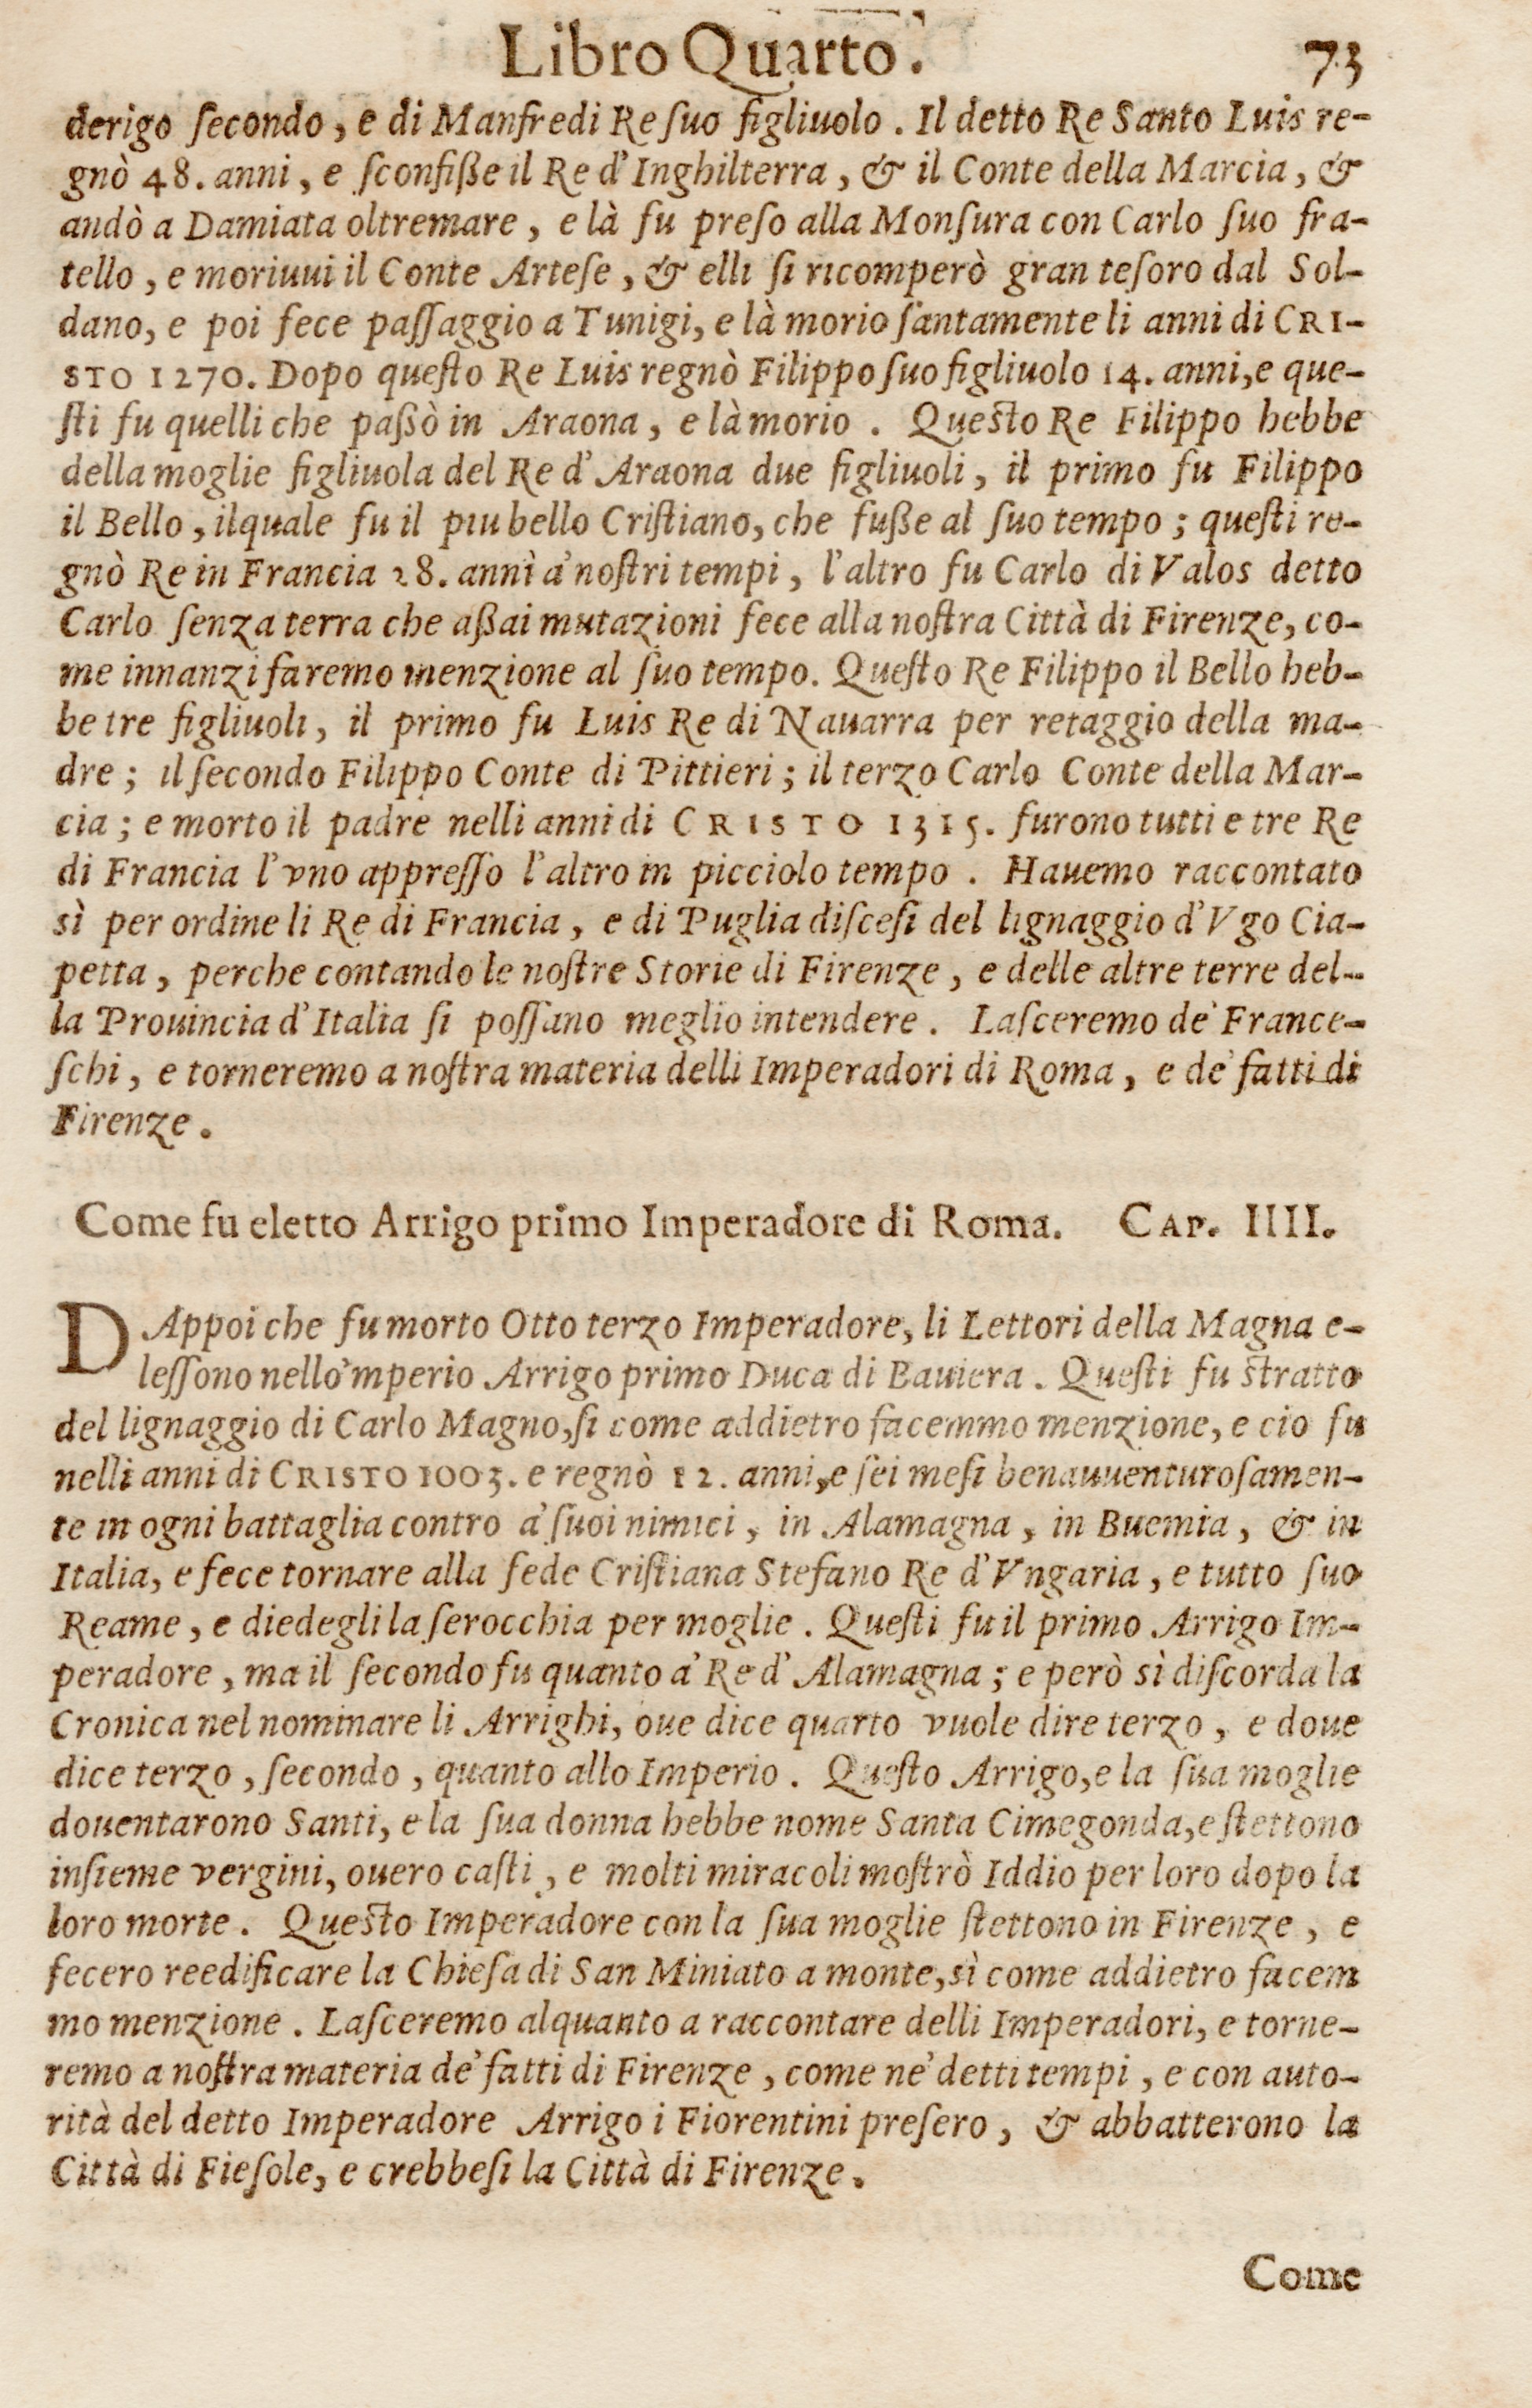 Libro Quarto. 73
derigo ſecondo, e di Manfredi Re ſuo figliuolo. Il detto Re Santo Luis re-
gnò 48. anni, e ſconfiße il Re d'Inghilterra, & il Conte della Marcia, &
andò a Damiata oltremare, e là fu preſo alla Monſura con Carlo ſuo fra-
tello, e moriuui il Conte Arteſe, & elli ſi ricomperò gran teſoro dal Sol-
dano, e poi fece paſſaggio a Tunigi, e là morio ſantamente li anni di CRI-
STO 1270. Dopo queſto Re Luis regnò Filippo ſuo figliuolo 14. anni, e que-
ſti fu quelli che paßò in Araona, e là morio. Queſto Re Filippo hebbe
della moglie figliuola del Re d'Araona due figliuoli, il primo fu Filippo
il Bello, ilquale fu il piu bello Criſtiano, che fuße al ſuo tempo; queſti re-
gnò Re in Francia 28. anni a' noſtri tempi, l'altro fu Carlo di Valos detto
Carlo ſenza terra che aßai mutazioni fece alla noſtra Città di Firenze, co-
me innanzi faremo menzione al ſuo tempo. Queſto Re Filippo il Bello heb-
be tre figliuoli, il primo fu Luis Re di Nauarra per retaggio della ma-
dre; il ſecondo Filippo Conte di Pittieri; il terzo Carlo Conte della Mar-
cia; e morto il padre nelli anni di CRISTO 1315. furono tutti e tre Re
di Francia l'vno appreſſo l'altro in picciolo tempo. Hauemo raccontato
sì per ordine li Re di Francia, e di Puglia diſceſi del lignaggio d'Vgo Cia-
petta, perche contando le noſtre Storie di Firenze, e delle altre terre del-
la Prouincia d'Italia ſi poſſano meglio intendere. Laſceremo de' France-
ſchi, e torneremo a noſtra materia delli Imperadori di Roma, e de' fatti di
Firenze.
Come fu eletto Arrigo primo Imperadore di Roma. CAP. IIII.
DAppoi che fu morto Otto terzo Imperadore, li Lettori della Magna e-
leſſono nello 'mperio Arrigo primo Duca di Bauiera. Queſti fu ſtratto
del lignaggio di Carlo Magno, ſi come addietro facemmo menzione, e cio fu
nelli anni di CRISTO 1003. e regnò 12. anni, e ſei meſi benauuenturoſamen-
te in ogni battaglia contro a' ſuoi nimici, in Alamagna, in Buemia, & in
Italia, e fece tornare alla fede Criſtiana Stefano Re d'Vngaria, e tutto ſuo
Reame, e diedegli la ſerocchia per moglie. Queſti fu il primo Arrigo Im-
peradore, ma il ſecondo fu quanto a' Re d'Alamagna; e però sì diſcorda la
Cronica nel nominare li Arrighi, oue dice quarto vuole dire terzo, e doue
dice terzo, ſecondo, quanto allo Imperio. Queſto Arrigo, e la ſua moglie
douentarono Santi, e la ſua donna hebbe nome Santa Cimegonda, e ſtettono
inſieme vergini, ouero caſti, e molti miracoli moſtrò Iddio per loro dopo la
loro morte. Queſto Imperadore con la ſua moglie ſtettono in Firenze, e
fecero reedificare la Chieſa di San Miniato a monte, sì come addietro facem
mo menzione. Laſceremo alquanto a raccontare delli Imperadori, e torne-
remo a noſtra materia de' fatti di Firenze, come ne' detti tempi, e con auto-
rità del detto Imperadore Arrigo i Fiorentini preſero, & abbatterono la
Città di Fieſole, e crebbeſi la Città di Firenze.
Come